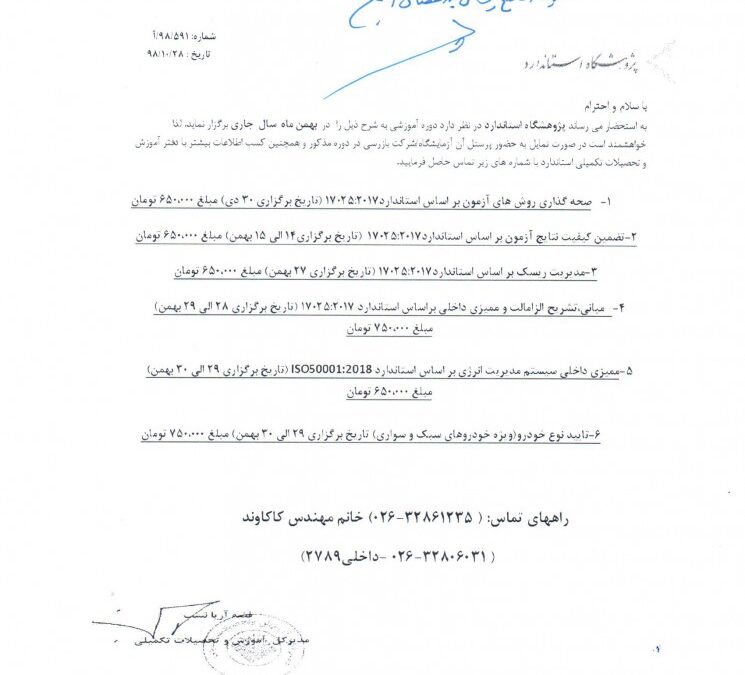 شماره: ۹۸/۵۹۱/آ
تاریخ : ۹۸/۱۰/۲۸
پژوهشگاه استاندارد
با سلام و احترام
به استحضار می رساند پژوهشگاه استاندارد در نظر دارد دوره آموزشی به شرح ذیل را در بهمن ماه سال جاری برگزار نماید. لذا
خواهشمند است در صورت تمایل به حضور پرسنل آن آزمایشگاه/شرکت بازرسی در دوره مذکور و همچنین کسب اطلاعات بیشتر با دفتر آموزش
و تحصیلات تکمیلی استاندارد با شماره های زیر تماس حاصل فرمایید.
۱- صحه گذاری روش های آزمون بر اساس استاندارد۱۷۰۲۵:۲۰۱۷ (تاریخ برگزاری ۳۰ دی) مبلغ ۶۵۰،۰۰۰ تومان
۲-تضمین کیفیت نتایج آزمون بر اساس استاندارد۱۷۰۲۵:۲۰۱۷ (تاریخ برگزاری۱۴ الی ۱۵ بهمن) مبلغ ۶۵۰،۰۰۰ تومان
۳-مدیریت ریسک بر اساس استاندارد۱۷۰۲۵:۲۰۱۷ (تاریخ برگزاری ۲۷ بهمن) مبلغ ۶۵۰،۰۰۰ تومان
۴- مبانی،تشریح الزامالت و ممیزی داخلی براساس استاندارد ۱۷۰۲۵:۲۰۱۷ (تاریخ برگزاری ۲۸ الی ۲۹ بهمن)
مبلغ ۷۵۰،۰۰۰ تومان
۵-ممیزی داخلی سیستم مدیریت انرژی بر اساس استاندارد ISO50001:2018 (تاریخ برگزاری ۲۹ الی ۳۰ بهمن)
مبلغ ۶۵۰،۰۰۰ تومان
۶-تایید نوع خودرو(ویژه خودروهای سبک و سواری) تاریخ برگزاری ۲۹ الی ۳۰ بهمن) مبلغ ۷۵۰،۰۰۰ تومان
راههای تماس: ( ۳۲۸۶۱۲۳۵-۰۲۶) خانم مهندس کاکاوند
( ۳۲۸۰۶۰۳۱-۰۲۶ -داخلی۲۷۸۹)
فضه آریا نسب
مدیرکل آموزش و تحصیلات تکمیلی